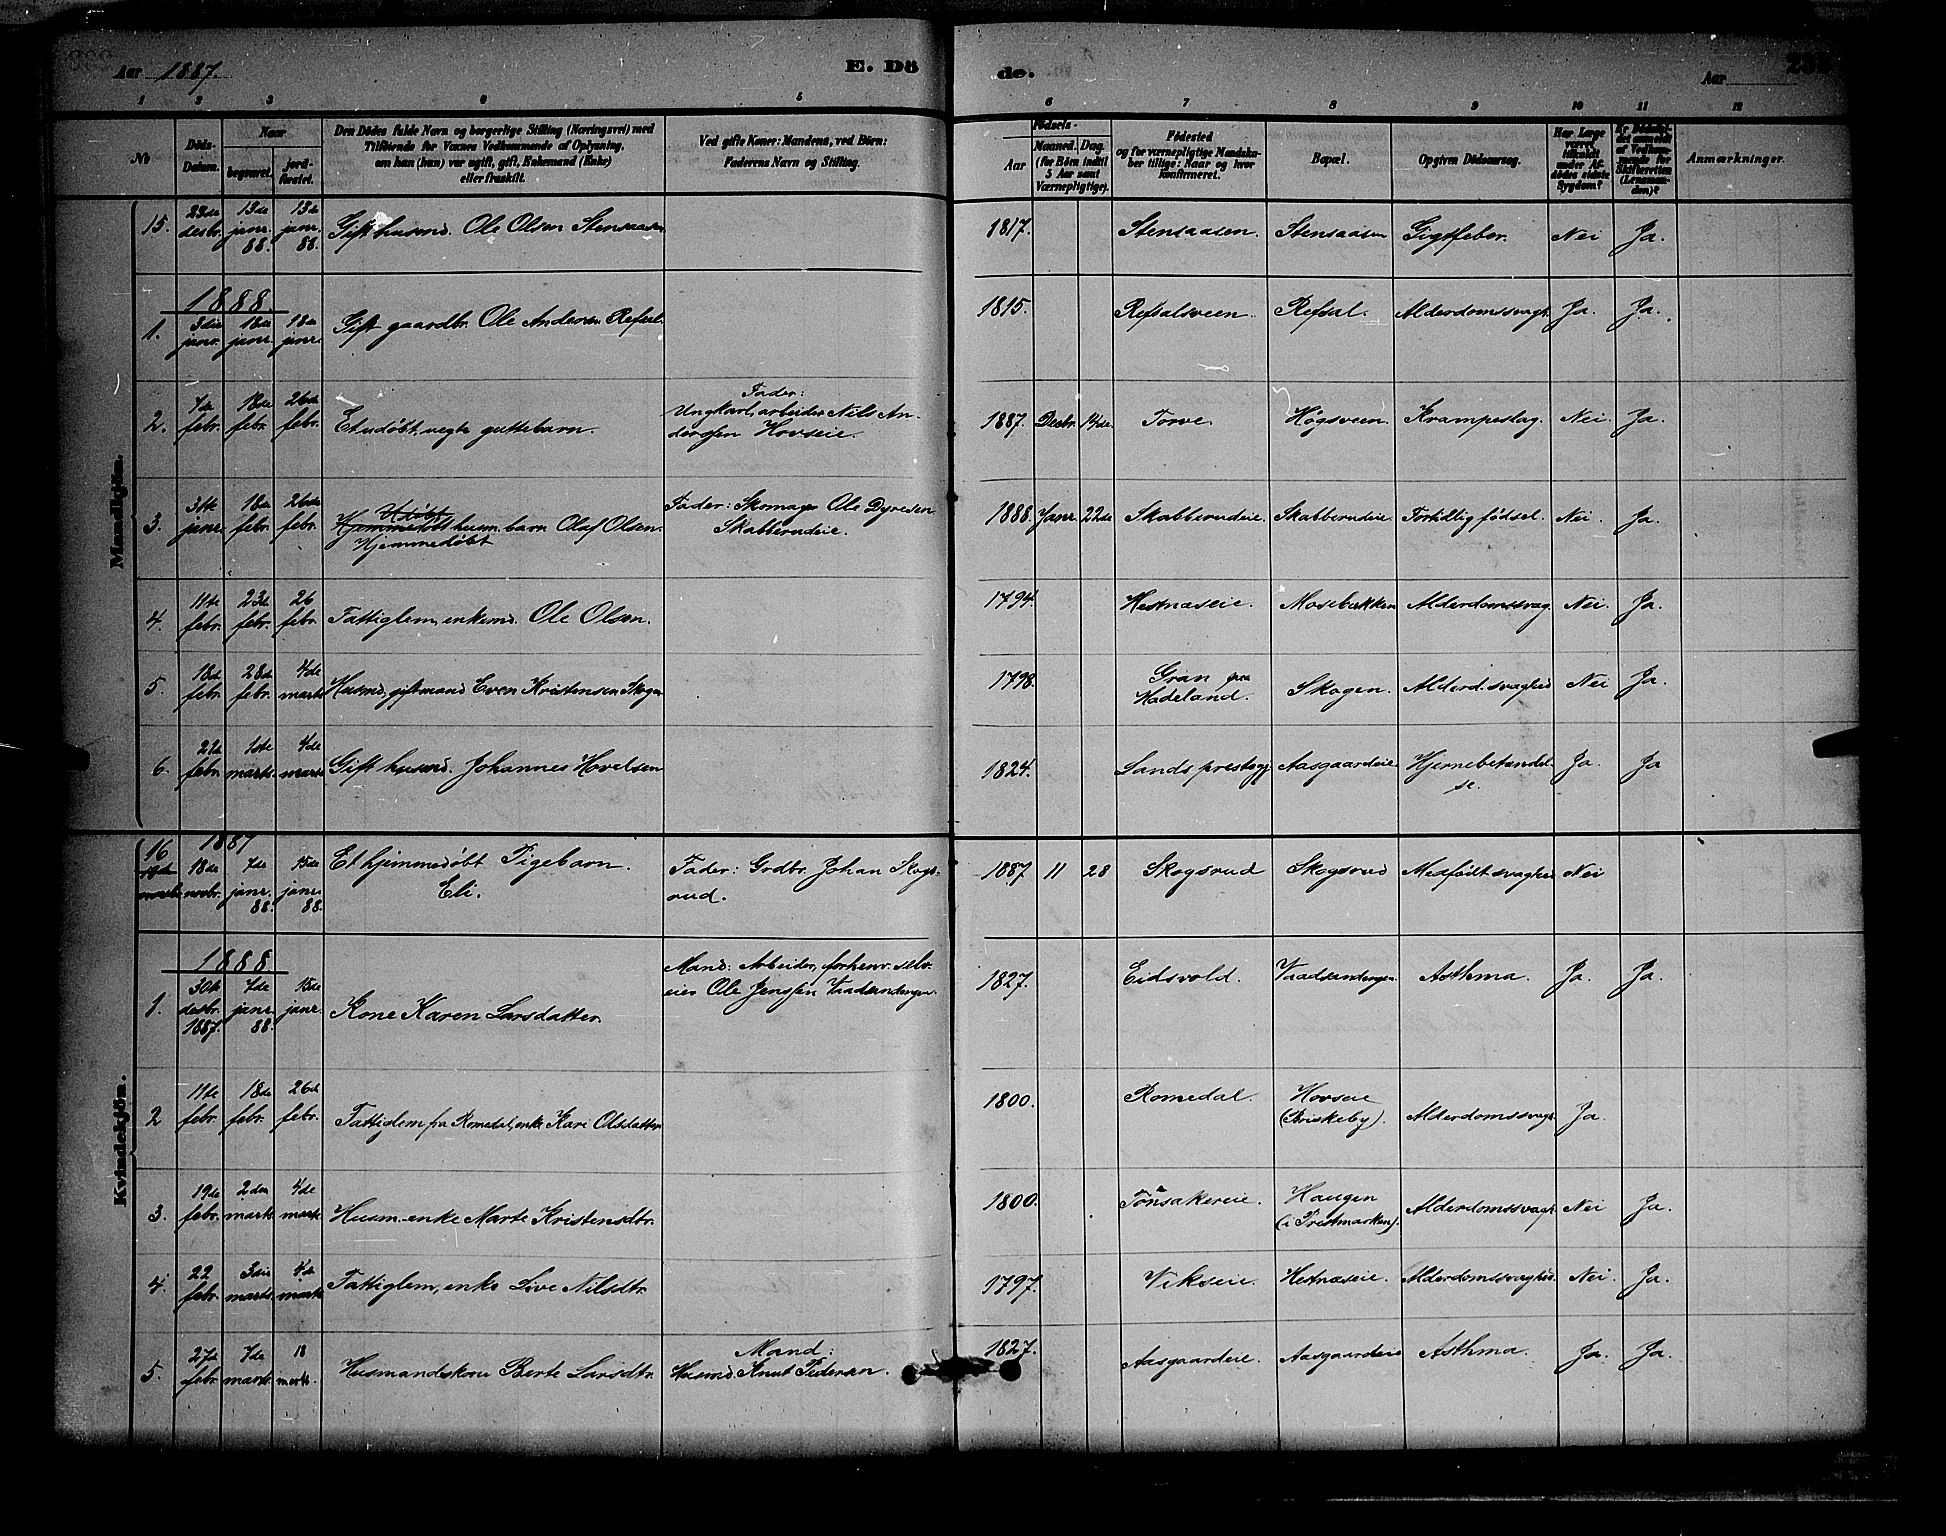 Aar 1887.
E. Döde.
Aar
1 2 3 4 5 6 7 8 9 10 11 12
No
Döds-Datum.
Naar
begravet.
jordfæstet.
Den Dödes fulde Navn og borgerlige Stilling (Næringsvei) med
Tilföiende for Voxnes Vedkommende af Oplysning,
om han (hun) var ugift, gift, Enkemand (Enke)
eller fraskilt.
Ved gifte Koner: Mandens, ved Börn:
Faderens Navn og Stilling.
Födsels-
Aar
Maaned. Dag.
(for Börn indtil
5 Aar samt
Værnepligtige).
Födested
og for værnepligtige Mandskaber
tillige: Naar og hvor
konfirmeret.
Bopæl.
Opgiven Dödsaarsag.
Anmærkninger.
Mandkjön.
15. 23de desbr. 13de janr. 88. 13de janr. 88. Gift husmd. Ole Olsen Stensaasen 1817. Stensaasen. Stensaasen Gigtfeber. Nei Ja.
1888.
1. 3die janr. 18de janr. 18de janr. Gift gaardbr. Ole Andersen Refsal. 1815. Refsalsveen. Refsal. Alderdomssvagh. Ja. Ja.
2. 7de febr. 18de febr. 26de febr. Et udöbt, uegte guttebarn. Fader:
Ungkarl, arbeider Nils Anderssen Hovseie. 1887. Desbr. 14de. Torve. Högsveen. Krampeslag. Nei. Ja.
3. 31te janr. 18de febr. 26de febr. Udöbt
Hjemmedöbt husm. barn Olaf Olsen.
Hjemmedöbt
Fader: Skomager Ole Dyresen
Skabberudeie. 1888. Janr. 22de Skabberudeie. Skabberudeie. Fortidlig födsel. Nei. Ja.
4. 11te febr. 23de febr. 26 febr. Fattiglem, enkemd. Ole Olsen. 1794. Hestnæseie. Mosebakken Alderdomssvag. Nei. Ja.
5. 18de febr. 28de febr. 4de marts Husmd, giftmand Even Kristensen Skogen 1798. Gran paa
Hadeland. Skogen. Alderd.svaghed Nei Ja.
6. febr. 1ste marts. 4de marts Gift husmd. Johannes Hovelsen 1824. Lands prestegj Aasgaardeie Hjernebetændelse. Ja. Ja
Kvindekjön.
1887
16 18de novbr. 7de janr. 88. 15de janr. 88. Et hjemmedöbt Pigebarn.
Eli. Fader: Grdbr. Johan Skogsrud. 1887 11 28 Skogsrud Skogsrud Medfödt svaghed Nei
1888
1. 30te desbr. 1887. 7de janr. 88. 15de janr. Kone Karen Larsdatter. Mand: Arbeider, forhenv. selveier Ole Jenssen 1827. Eidsvold. Asthma. Ja. Ja.
2 11te febr. 18de febr. 26de febr. Fattiglem fra Romedal, enke Kari Olsdatter 1800. Romedal. Hovseie
(Briskeby). Alderdomssvagh. Ja.
3. 19de febr. 2den marts. 4de marts Husm.-enke Marte Kristensdtr. 1800. Tönsakereie. Haugen
(i Prestmarken). Alderdomssvagh. Nei Ja.
4. 22 febr. 3die marts. 4de marts Fattiglem, enke Live Nilsdtr. 1797. Vikseie. Hestnæseie. Alderdomssvaghed. Nei. Ja.
5. 27de febr. 7de marts. 18 marts. Husmandskone Berte Larsdtr. Mand:
Husmd. Knut Pedersen. 1827. Aasgaardeie. Aasgaardeie Asthma. Ja. Ja.